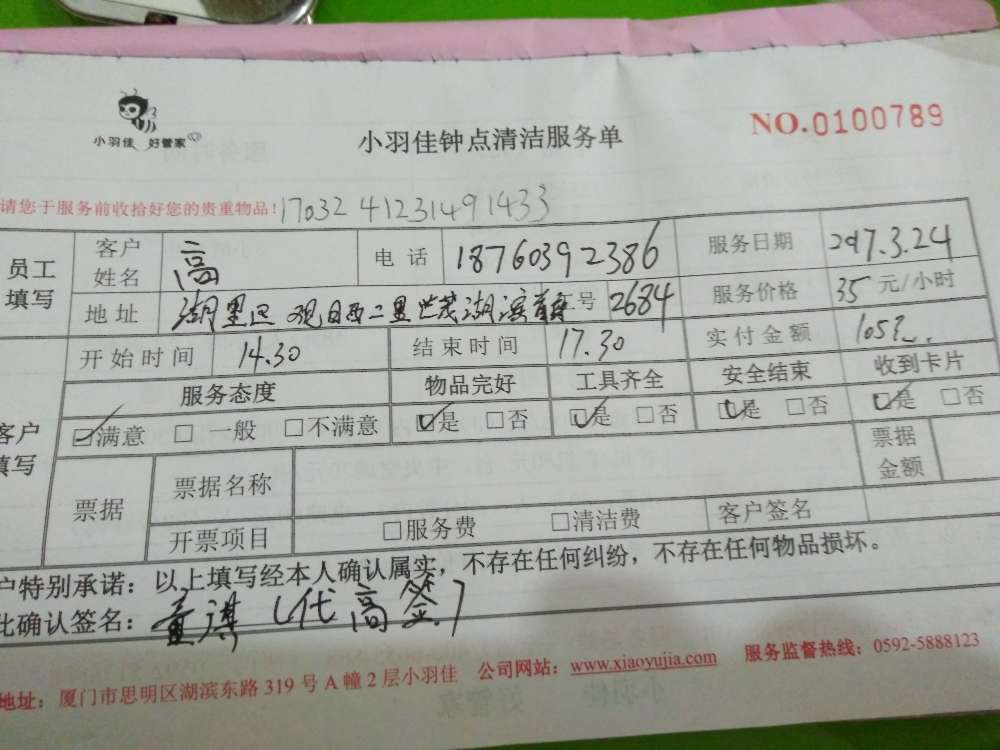 小羽佳 好管家
小羽佳钟点清洁服务单
NO.0100789
请您于服务前收拾好您的贵重物品!17032 41231491433
员工填写 客户姓名 高 电话 18760392386 服务日期 2017.3.24
地址 湖里区 观日西二里世茂湖滨首 号 2684 服务价格 35 元/小时
开始时间 14.30 结束时间 17.30 实付金额 105元
客户填写 服务态度 物品完好 工具齐全 安全结束 收到卡片
☑满意 □一般 □不满意 ☑是 □否 ☑是 □否 ☑是 □否 ☑是 □否
票据 票据名称 票据金额
开票项目 □服务费 □清洁费 客户签名
户特别承诺:以上填写经本人确认属实,不存在任何纠纷,不存在任何物品损坏。
此确认签名: (代高签)
地址:厦门市思明区湖滨东路 319 号 A 幢 2 层小羽佳 公司网站:www.xiaoyujia.com 服务监督热线:0592-5888123